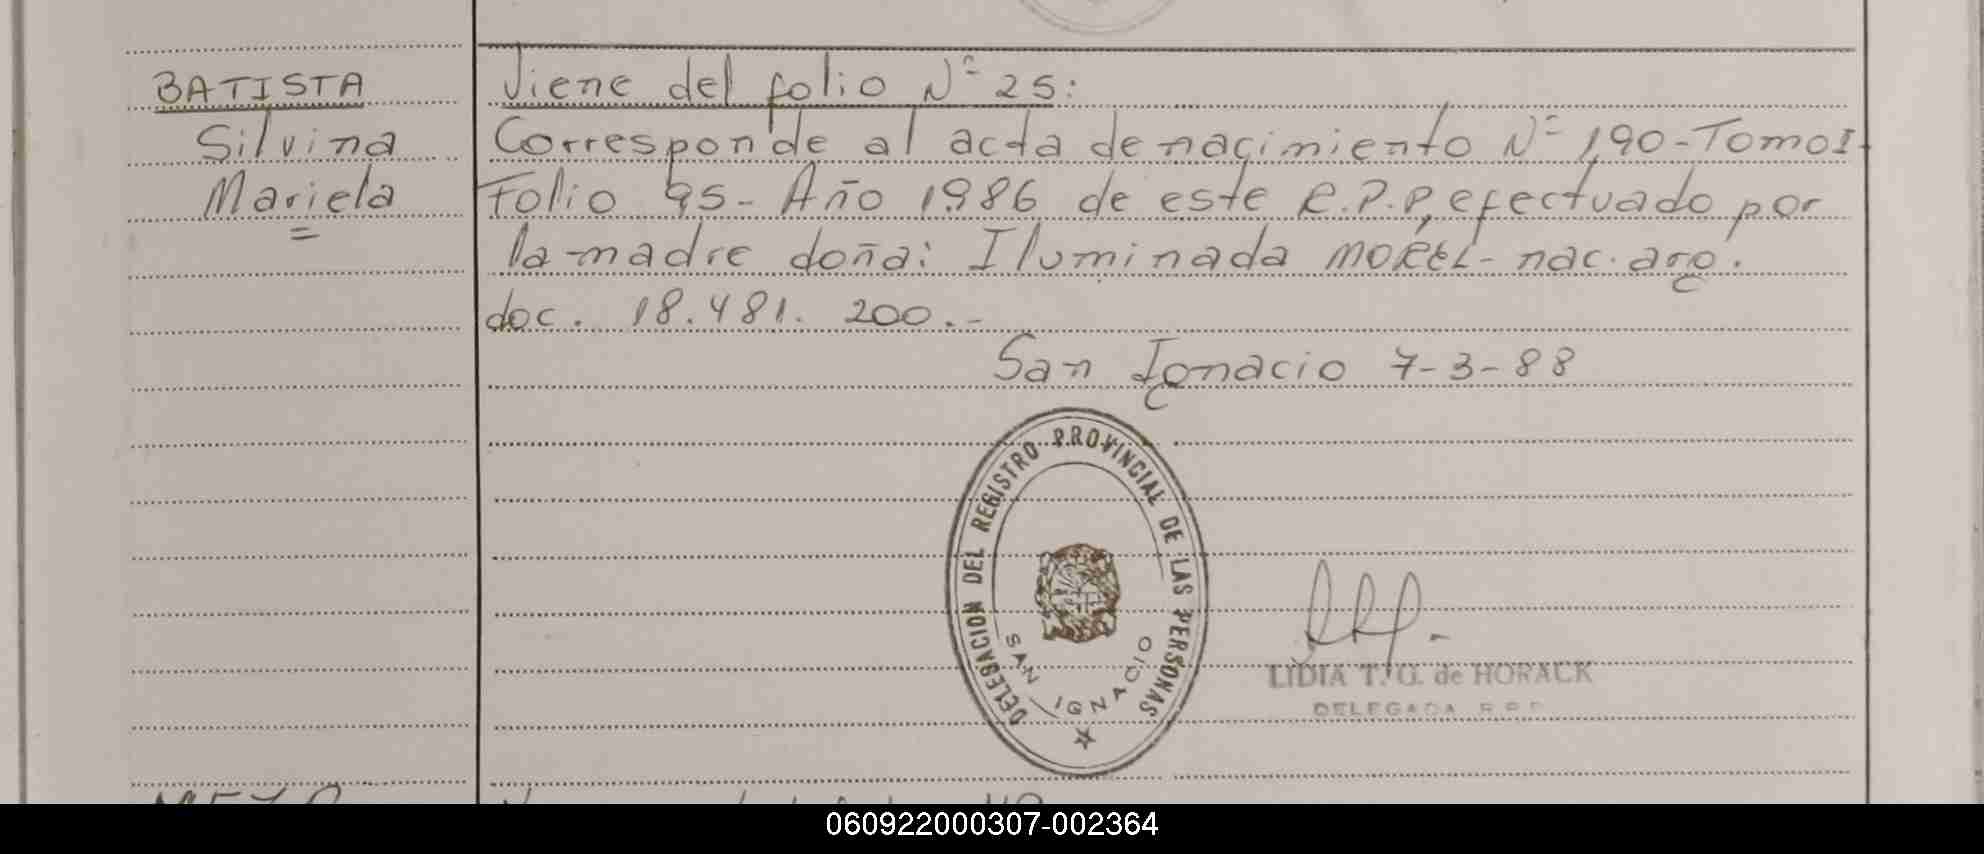 BATISTA
Silvina
Mariela
Viene del folio Nº 25:
Corresponde al acta de nacimiento Nº 190-Tomo I-
Folio 95- Año 1986 de este R.P.P, efectuado por
la madre doña: Iluminada MOREL- nac. arg.
doc. 18.481.200.-
San Ignacio 7-3-88
DELEGACION DEL REGISTRO PROVINCIAL DE LAS PERSONAS
SAN IGNACIO
LIDIA T. G. de HORACK
DELEGADA R.P.P.
060922000307-002364